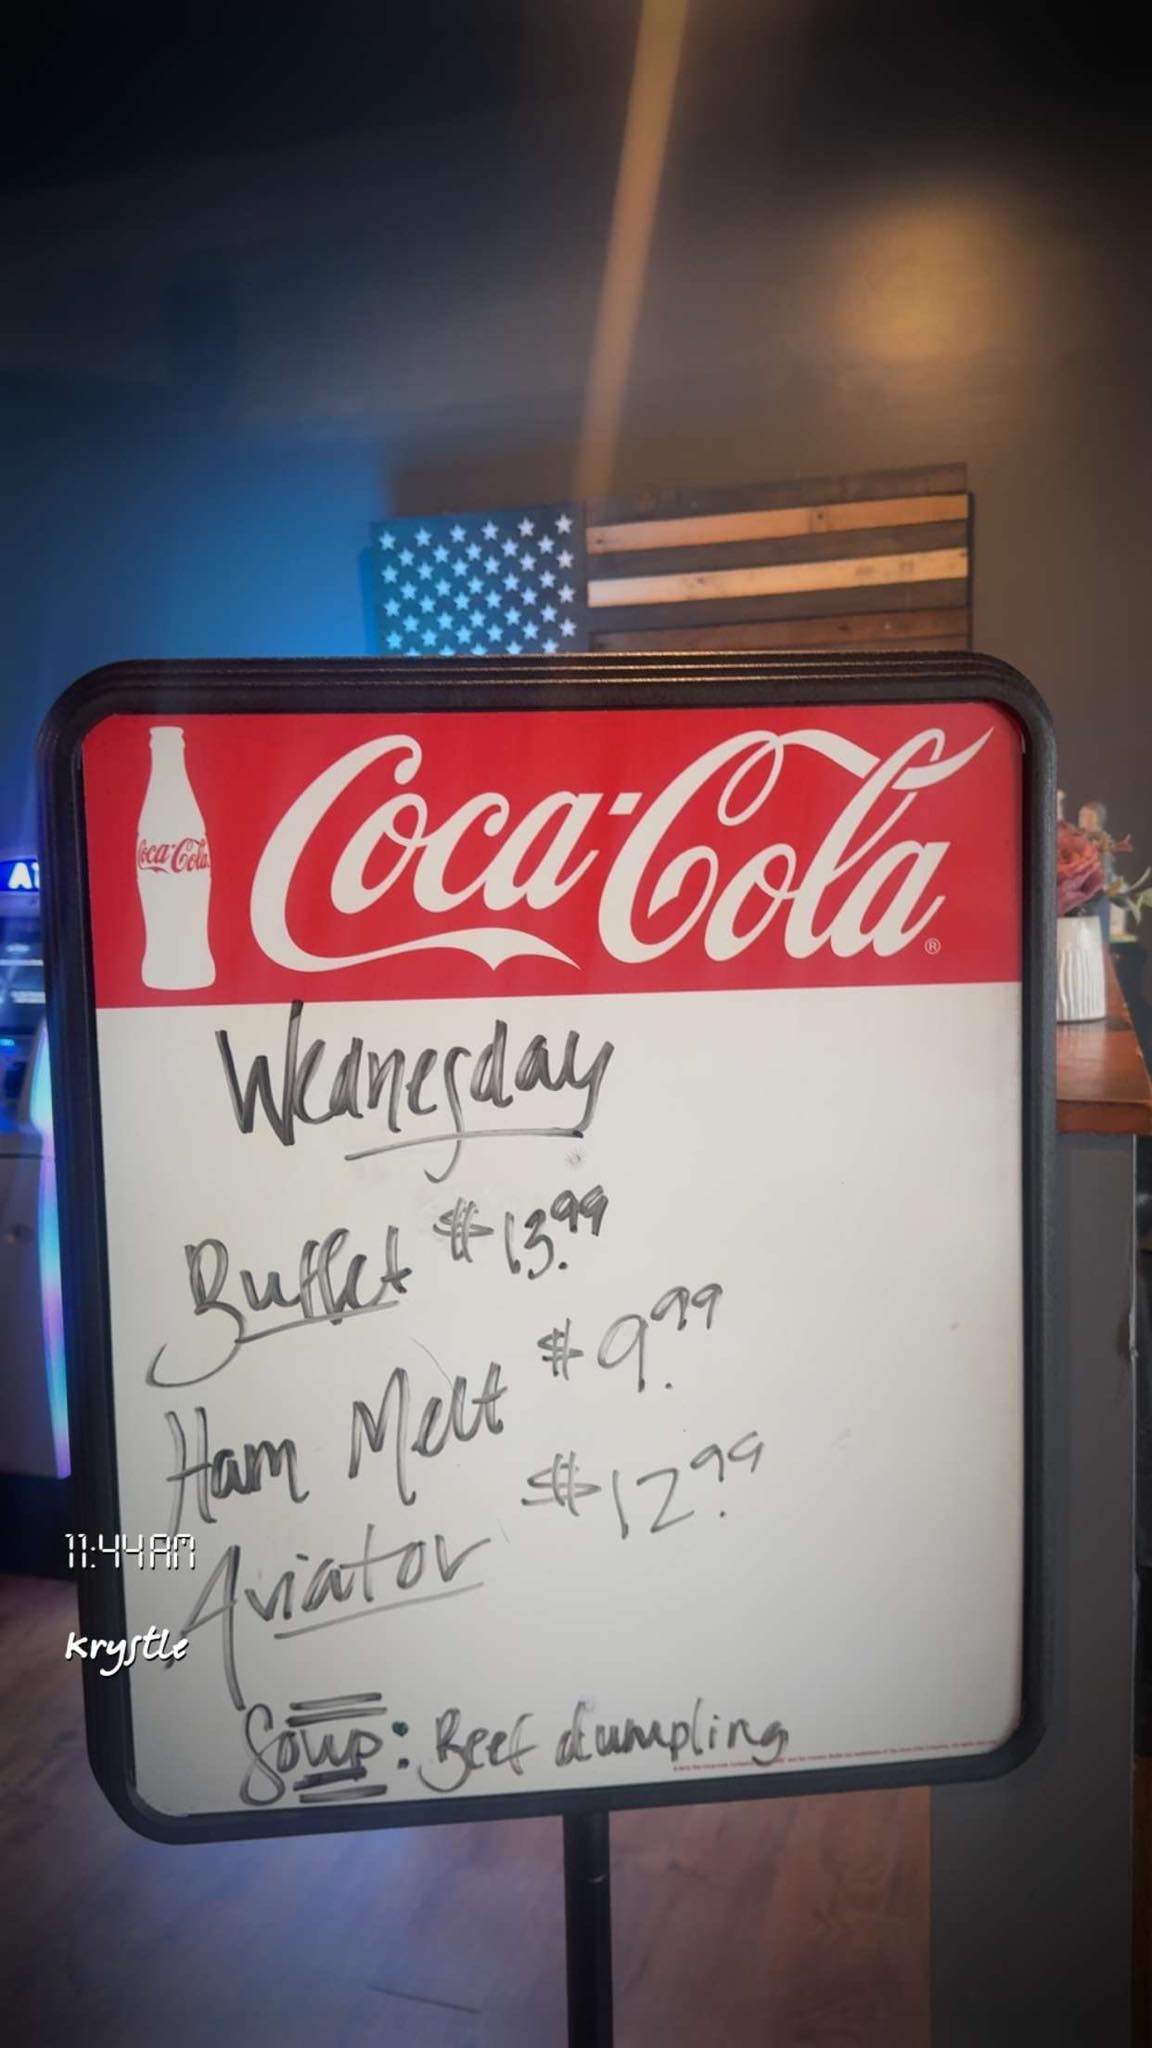 Coca-Cola
Coca-Cola®
Wednesday
Buffet $13.99
Ham Melt $9.99
Aviator $12.99
11:44 AM
Krystle
Soup: Beef dumpling